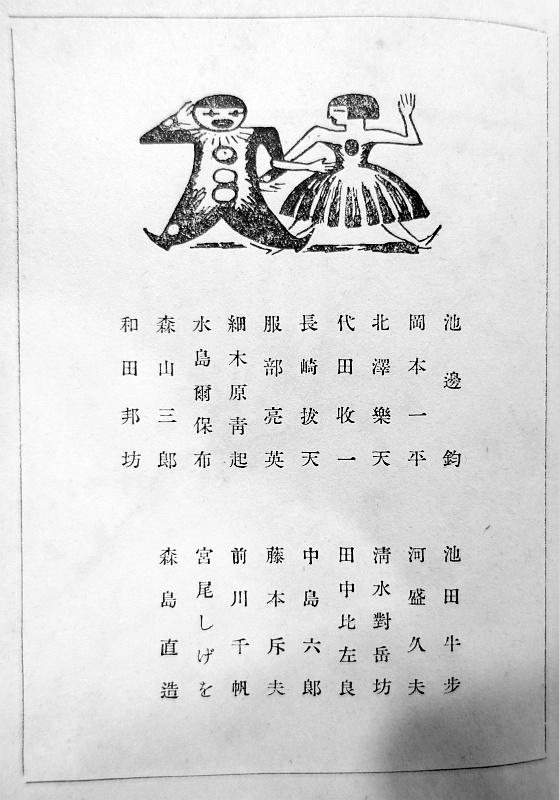 池邊鈞
岡本一平
北澤樂天
代田收一
長崎拔天
服部亮英
細木原靑起
水島爾保布
森山三郎
和田邦坊
池田牛步
河盛久夫
淸水對岳坊
田中比左良
中島六郎
藤本斥夫
前川千帆
宮尾しげを
森島直造